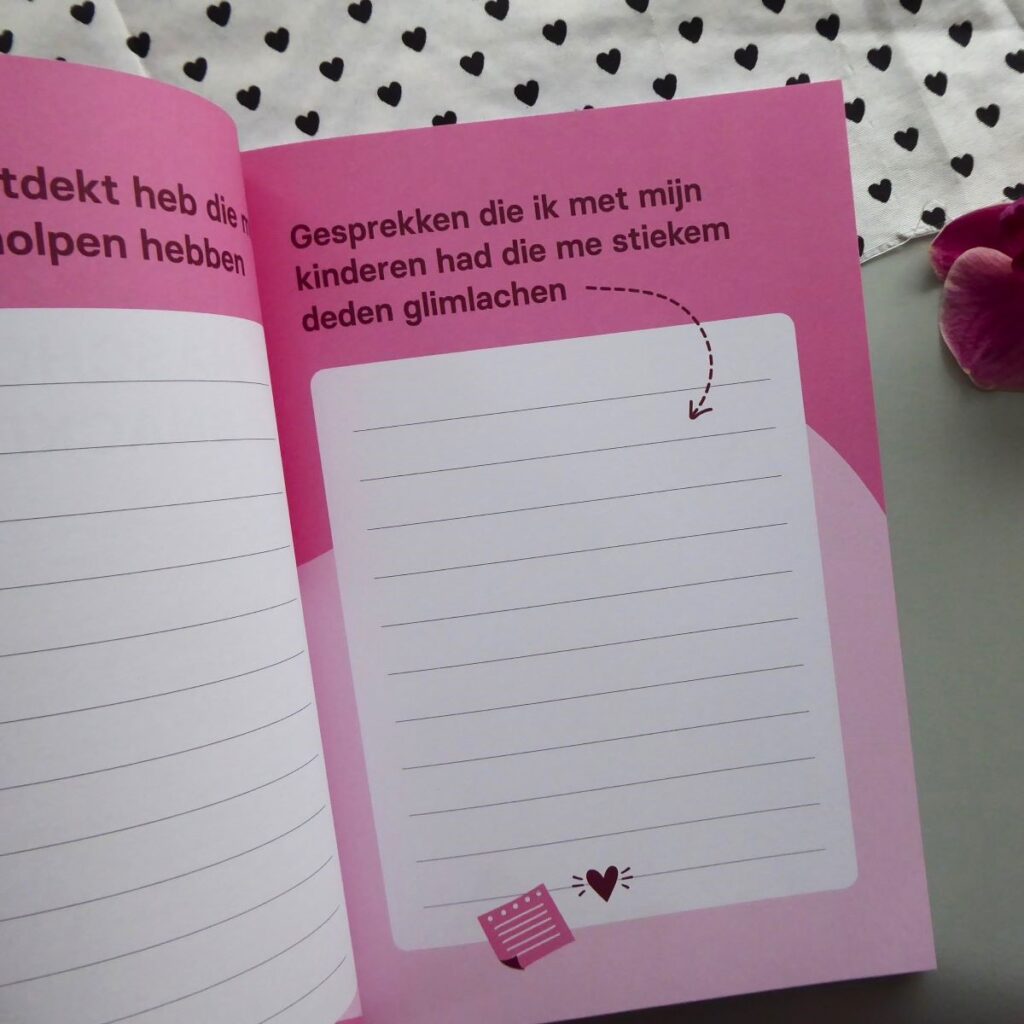 tdekt heb die
holpen hebben
Gesprekken die ik met mijn
kinderen had die me stiekem
deden glimlachen